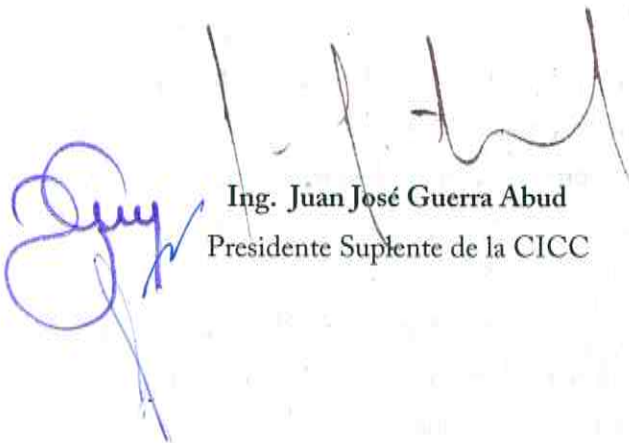 Ing. Juan José Guerra Abud
Presidente Suplente de la CICC